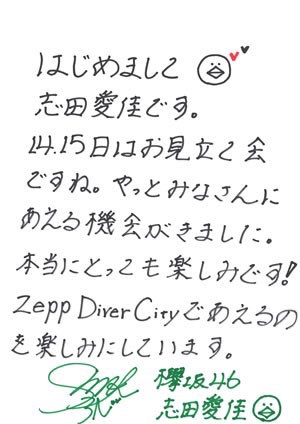 はじめまして
志田愛佳です。
14.15日はお見立て会
ですね。やっとみなさんに
あえる機会がきました。
本当にとっても楽しみです!
Zepp Diver Cityであえるの
を楽しみにしています。
欅坂46
志田愛佳